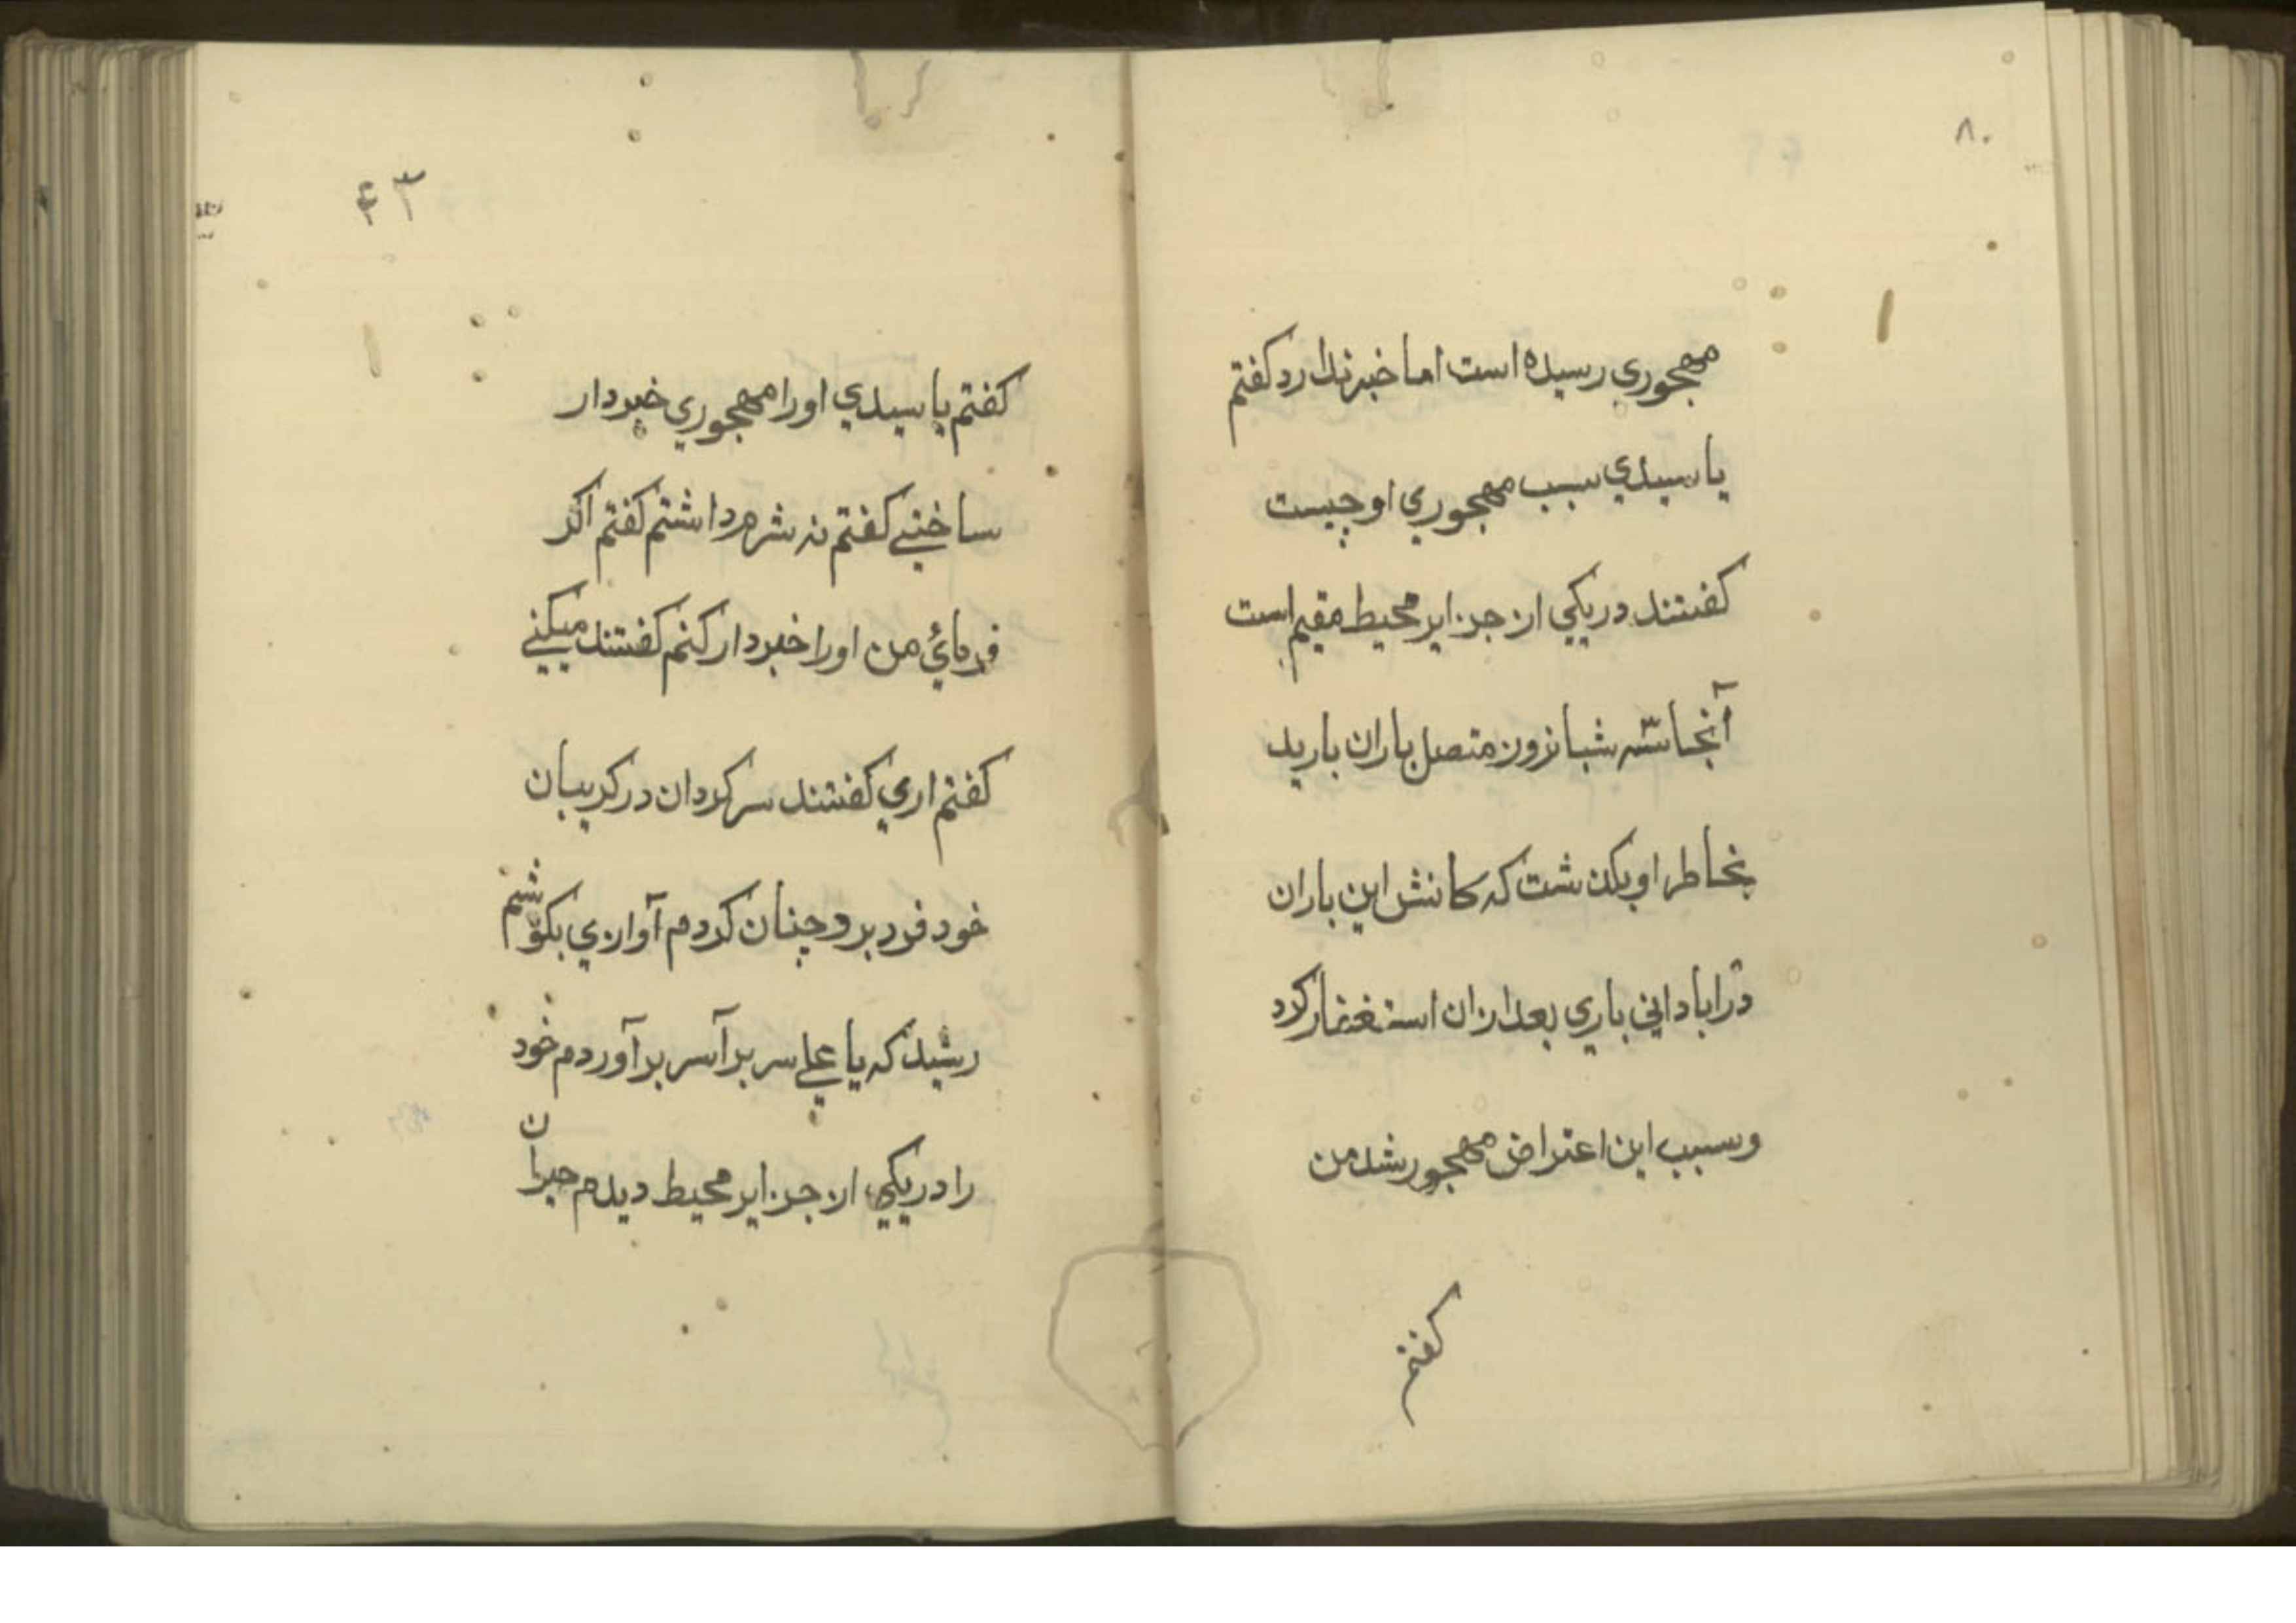 ۸۰
مهجوري رسيده است اما خبر ندارد كفتم
يا سيدي سبب مهجوري او چيست
كفتند در يكي از جزاير محيط مقيم است
آنجا سه شبانروز متصل باران باريد
بخاطر او بكذشت كه كانش اين باران
در ابادانی باري بعد ازان استغفار كرد
و سبب اين اعتراض مهجور شد من
كفتم
۴۳
كفتم يا سيدي او را مهجوري خبردار
ساختی كفتم نه شرم داشتم كفتم اكر
فرمائي من او را خبردار كنم كفتند ميكنی
كفتم اري كفتند سر كردان در كريبان
خود فرد برد چنان كردم آوازي بكوشم
رسيد كه يا علی سر بر آر سر بر آوردم خود
را در يكي از جزاير محيط ديدم حيران